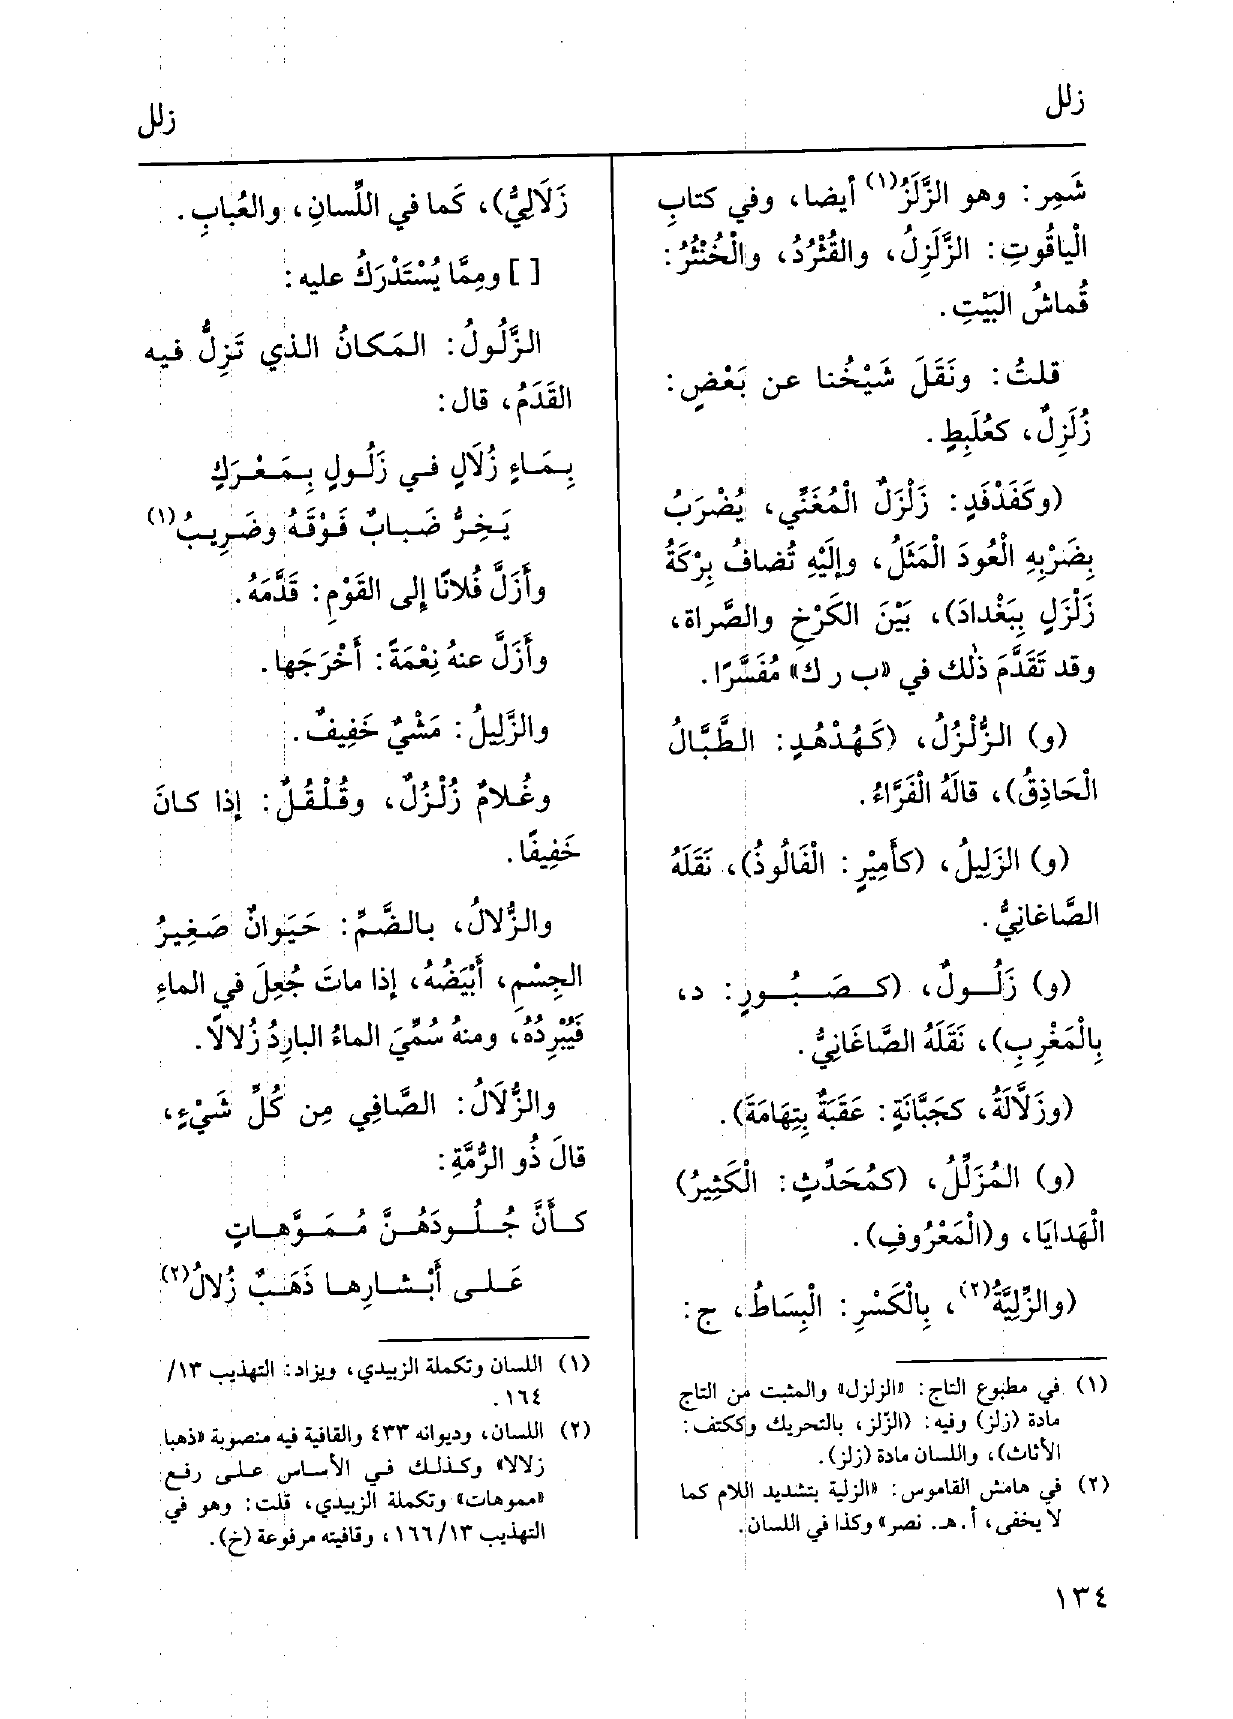 زلل
زلل
شَمِر: وهو الزَّلَزُ(١) أيضا، وفي كتابِ
الْياقُوتِ: الزَّلَزِلُ، والقُثْرُدُ، والْخُنْثُرُ:
قُماشُ البَيْتِ.
قلتُ: ونَقَلَ شَيْخُنا عن بَعْضٍ:
زُلَزِلٌ، كعُلَبِطٍ.
(وكَفَدْفَدٍ: زَلْزَلٌ الْمُغَنِّي، يُضْرَبُ
بِضَرْبِهِ الْعُودَ الْمَثَلُ، وإلَيْهِ تُضافُ بِرْكَةُ
زَلْزَلٍ بِبَغْدادَ)، بَيْنَ الكَرْخِ والصَّراة،
وقد تَقَدَّمَ ذٰلك في «ب ر ك» مُفَسَّرًا.
(و) الزُّلْزُلُ، (كَهُدْهُدٍ: الطَّبَّالُ
الْحَاذِقُ)، قالَهُ الْفَرَّاءُ.
(و) الزَلِيلُ، (كأَمِيْرٍ: الْفَالُوذُ)، نَقَلَهُ
الصَّاغانِيُّ.
(و) زَلُولٌ، (كصَبُورٍ: د،
بِالْمَغْرِبِ)، نَقَلَهُ الصَّاغَانِيُّ.
(وزَلَّالَةُ، كجَبَّانَةٍ: عَقَبَةٌ بِتِهَامَةَ).
(و) المُزَلِّلُ، (كمُحَدِّثٍ: الْكَثِيرُ)
الْهَدايَا، و(الْمَعْرُوفِ).
(والزِّلِيَّةُ(٢)، بِالْكَسْرِ: الْبِسَاطُ، ج:
(١) في مطبوع التاج: «الزلزل» والمثبت من التاج
مادة (زلز) وفيه: (الزّلز، بالتحريك وككتف:
الأثاث)، واللسان مادة (زلز).
(٢) في هامش القاموس: «الزلية بتشديد اللام كما
لا يخفى، أ.هـ. نصر» وكذا في اللسان.
زَلَالِيُّ)، كَما في اللِّسانِ، والعُبابِ.
[ ] ومِمَّا يُسْتَدْرَكُ عليه:
الزَّلُولُ: المَكانُ الذي تَزِلُّ فيه
القَدَمُ، قال:
بِمَاءٍ زُلَالٍ في زَلُولٍ بِمَعْرَكٍ
يَخِرُّ ضَبابٌ فَوْقَهُ وضَرِيبُ(١)
وأَزَلَّ فُلانًا إلى القَوْمِ: قَدَّمَهُ.
وأَزَلَّ عنهُ نِعْمَةً: أَخْرَجَها.
والزَّلِيلُ: مَشْيٌ خَفِيفٌ.
وغُلامٌ زُلْزُلٌ، وقُلْقُلٌ: إذا كانَ
خَفِيفًا.
والزُّلالُ، بالضَّمِّ: حَيَوانٌ صَغِيرُ
الجِسْمِ، أَبْيَضُهُ، إذا ماتَ جُعِلَ في الماءِ
فَيُبْرِدُهُ، ومنهُ سُمِّيَ الماءُ البارِدُ زُلالًا.
والزُّلَالُ: الصَّافِي مِن كُلِّ شَيْءٍ،
قالَ ذُو الرُّمَّةِ:
كأَنَّ جُلُودَهُنَّ مُمَوَّهاتٍ
عَلى أَبْشارِها ذَهَبٌ زُلالُ(٢)
(١) اللسان وتكملة الزبيدي، ويزاد: التهذيب ١٣/
١٦٤.
(٢) اللسان، وديوانه ٤٣٣ والقافية فيه منصوبة «ذهبا
زلالا» وكذلك في الأساس على رفع
«مموهات» وتكملة الزبيدي، قلت: وهو في
التهذيب ١٣/١٦٦، وقافيته مرفوعة (خ).
١٣٤